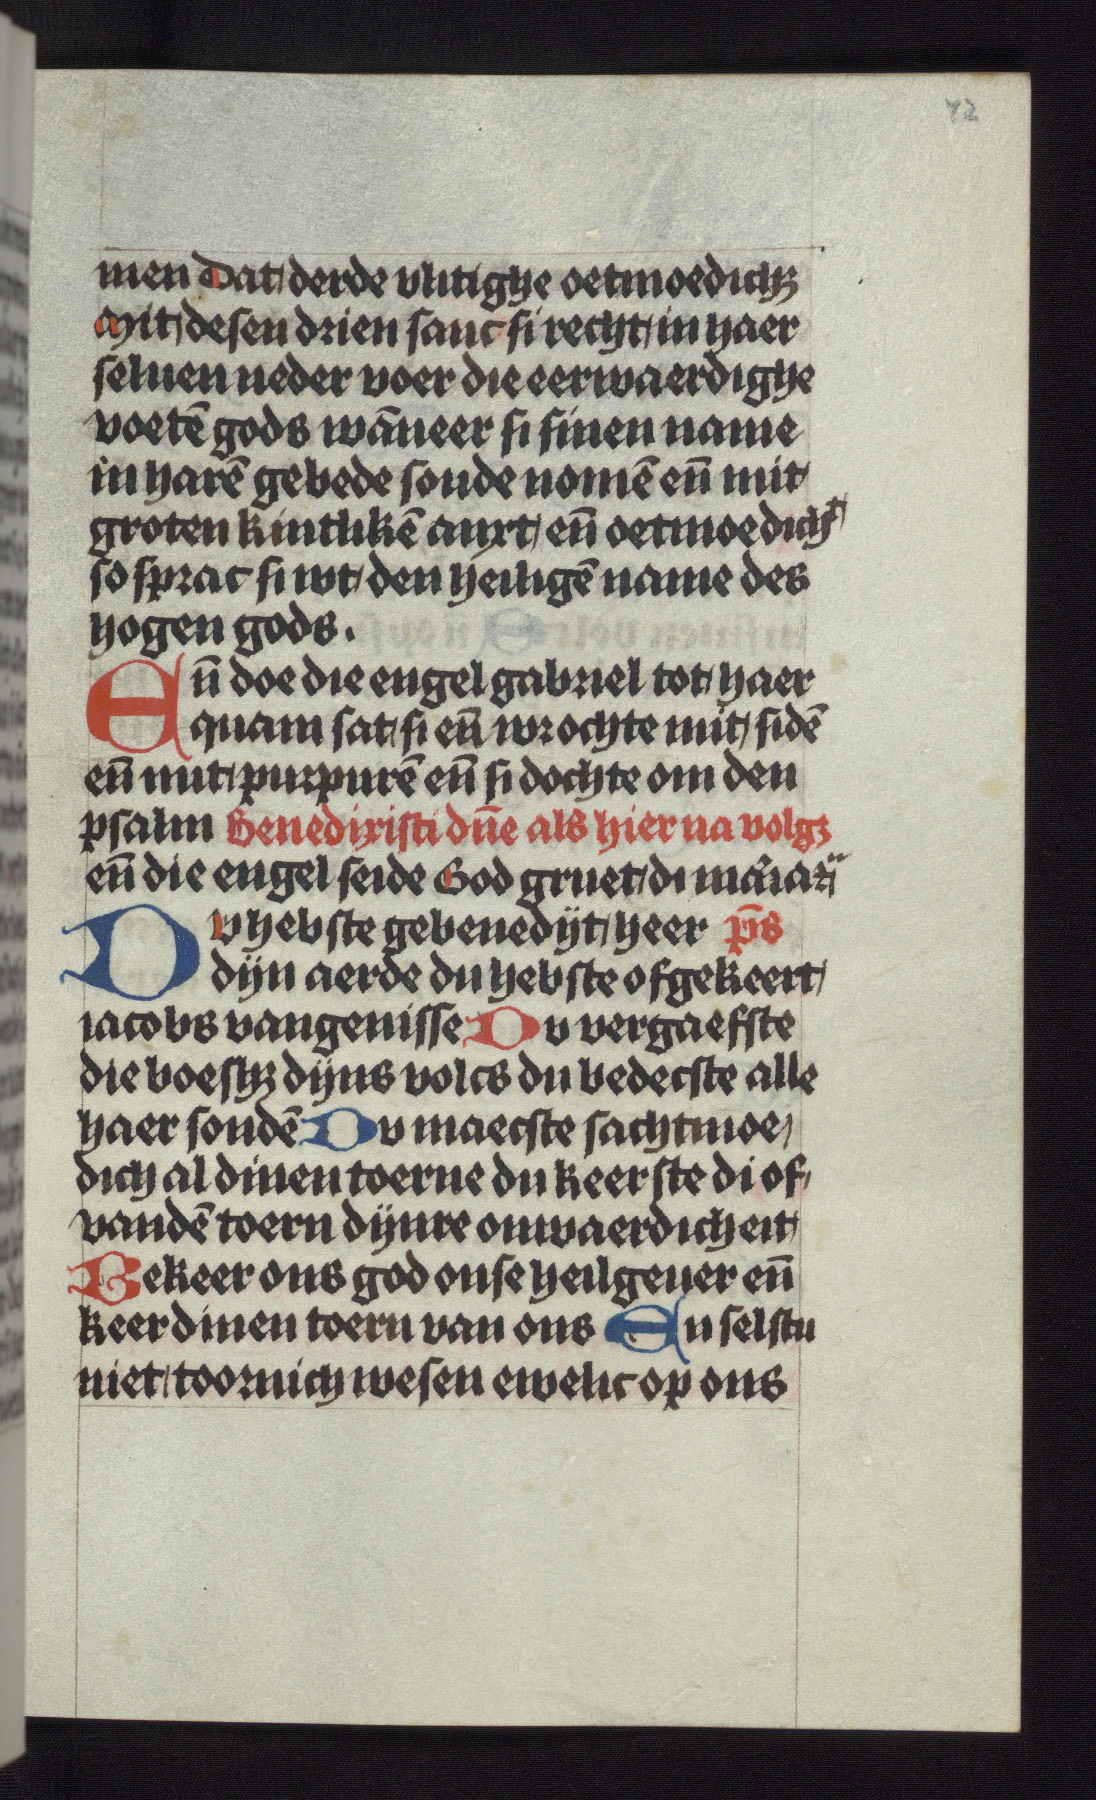 42
men Dat derde vlitighe oetmoedichꝫ
Mit desen drien sanc si recht in haer
seluen neder voer die eerwaerdighe
voetē gods wāneer si sinen name
in harē gebede soude nomē eñ mit
groten kintlikē anxt eñ oetmoedichᵗ
so sprac si wt den heiligē name des
hogen gods.
Eñ doe die engel gabriel tot haer
quam sat si eñ wrochte mit sidē
eñ mit purpurē eñ si dochte om den
psalm Benedixisti dñe als hier na volgꝫ
eñ die engel seide God gruet di maria
DV hebste gebenedijt heer p̄s
dijn aerde du hebste ofgekeert
iacobs vangenisse Dv vergaefste
die boeshꝫ dijns volcs du bedecste alle
haer sondē Dv maecste sachtmoe
dich al dinen toerne du keerste di of
vandē toern dijnre onwaerdicheit
Bekeer ons god onse heilgeuer eñ
keer dinen toern van ons En selstu
niet toornich wesen ewelic op ons